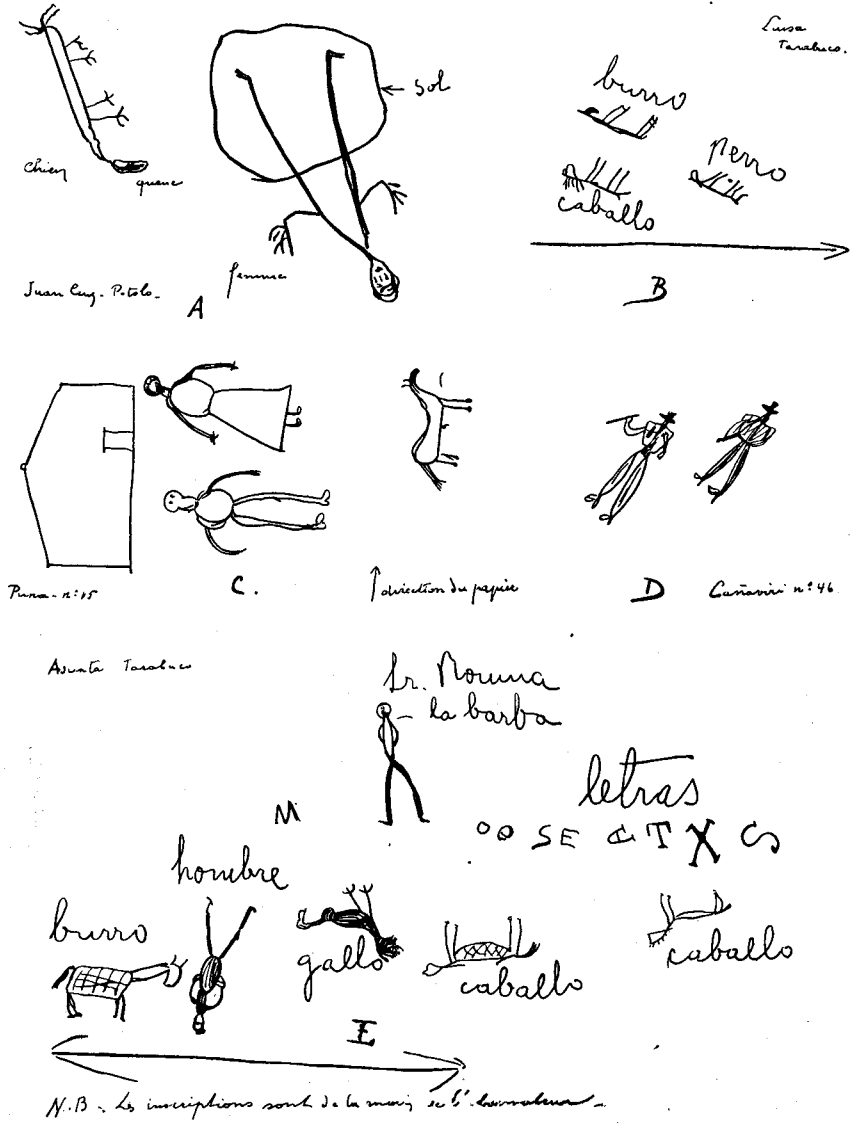 Luisa
Tarabuco.
sol
burro
perro
chien
queue
caballo
femme
Juan Eug. Potolo.
A
B
Puna - nº 15
C.
direction du papier
D
Cañaviri nº 46
Asunta Tarabuco
Sr. Rouma
la barba
letras
M
S E T X S
hombre
burro
gallo
caballo
caballo
E
N.B. Les inscriptions sont de la main de l'